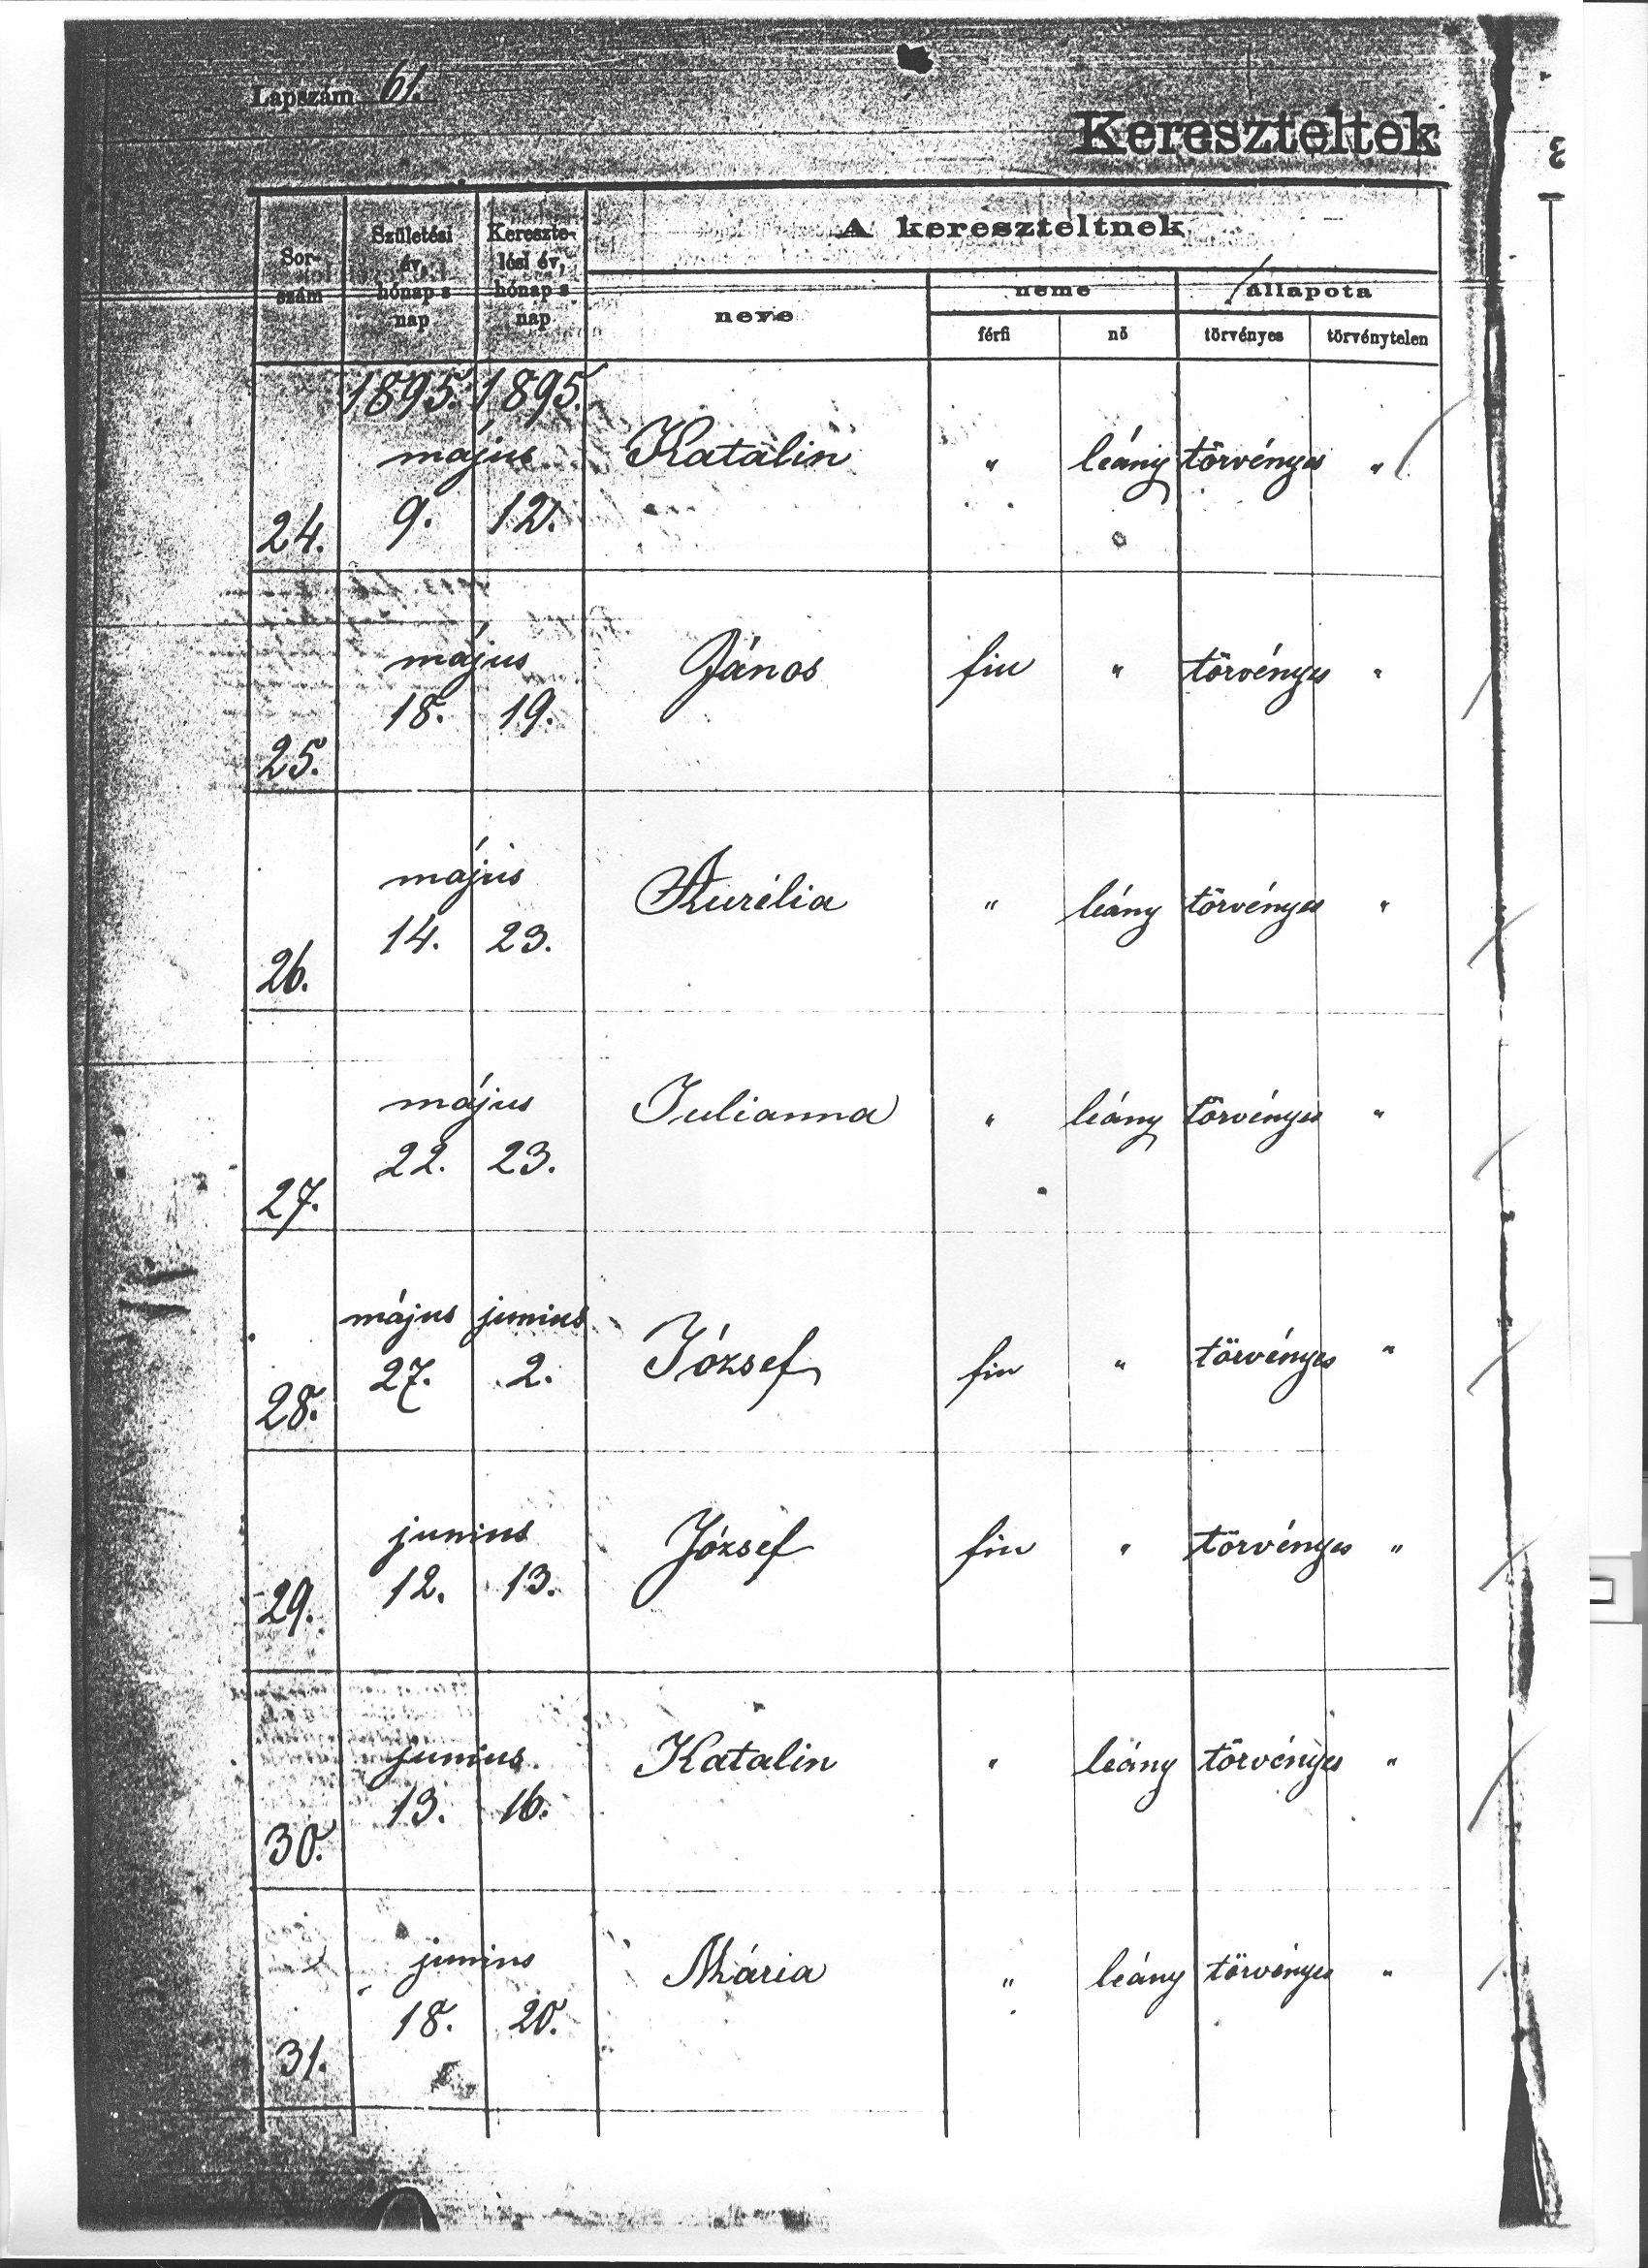 Lapszám 61.
Kereszteltek
Sor-
szám
Születési
év,
hónap s
nap
Keresztе-
lési év,
hónap s
nap
A kereszteltnek
neve
neme
állapota
férfi
nő
törvényes
törvénytelen
1895. 1895.
május Katalin " leány törvényes "
24. 9. 12.
május János fiu " törvényes "
18. 19.
25.
május Aurélia " leány törvényes "
14. 23.
26.
május Julianna " leány törvényes "
22. 23.
27.
május junius József fiu " törvényes "
27. 2.
28.
junius József fiu " törvényes "
12. 13.
29.
junius Katalin " leány törvényes "
13. 16.
30.
junius Mária " leány törvényes "
18. 20.
31.